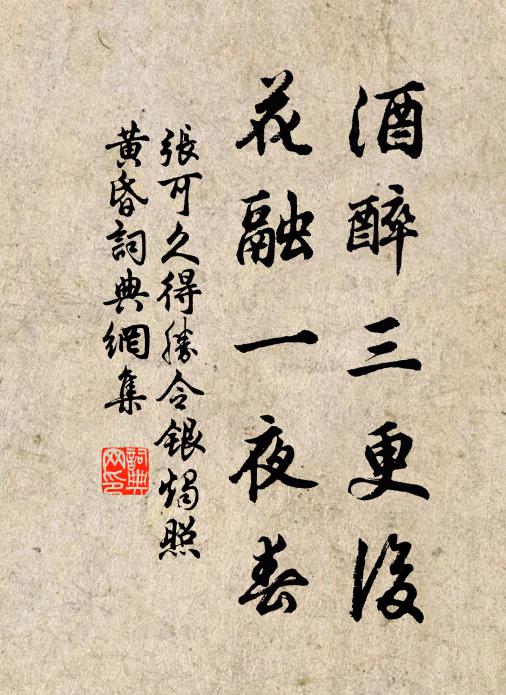 酒醉三更後
花融一夜春
張可久得勝令銀燭照
黃昏詞典網集
詞典網印